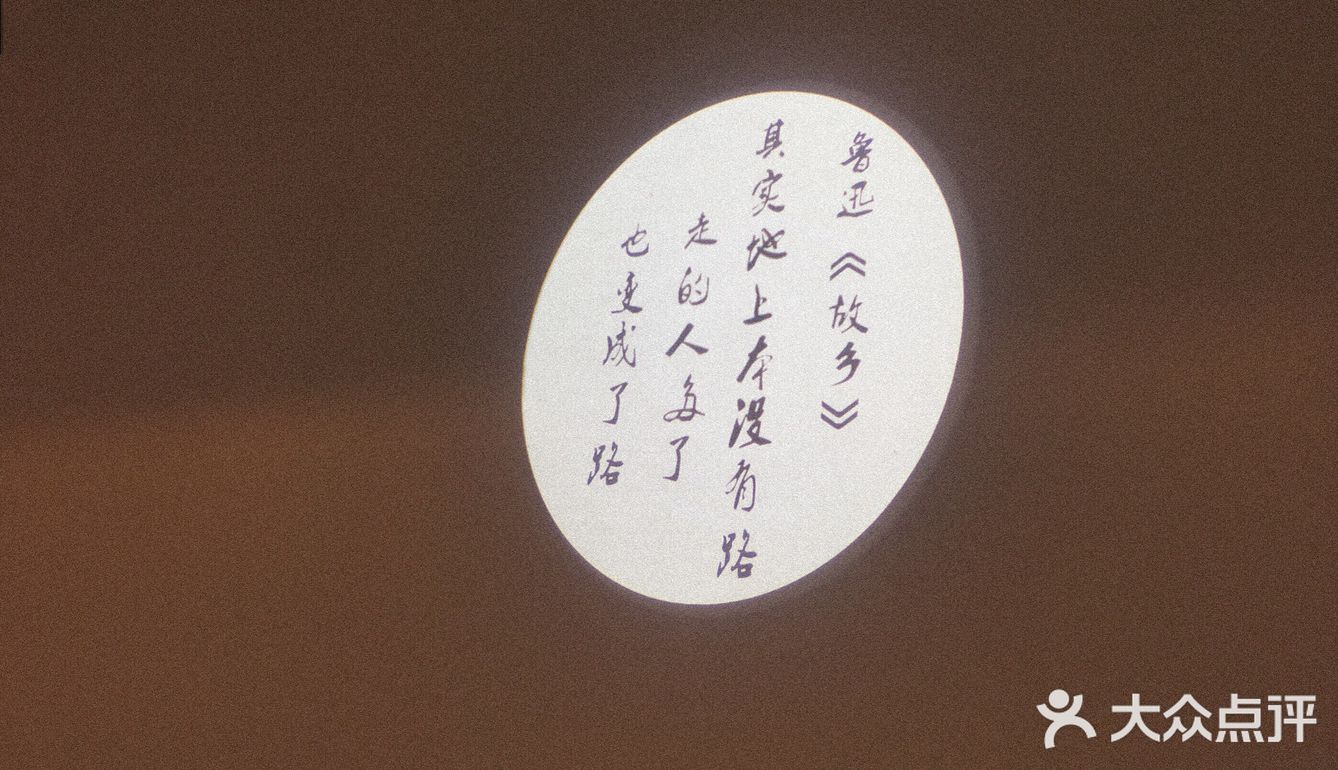 鲁迅《故乡》
其实地上本没有路
走的人多了
也变成了路
大众点评